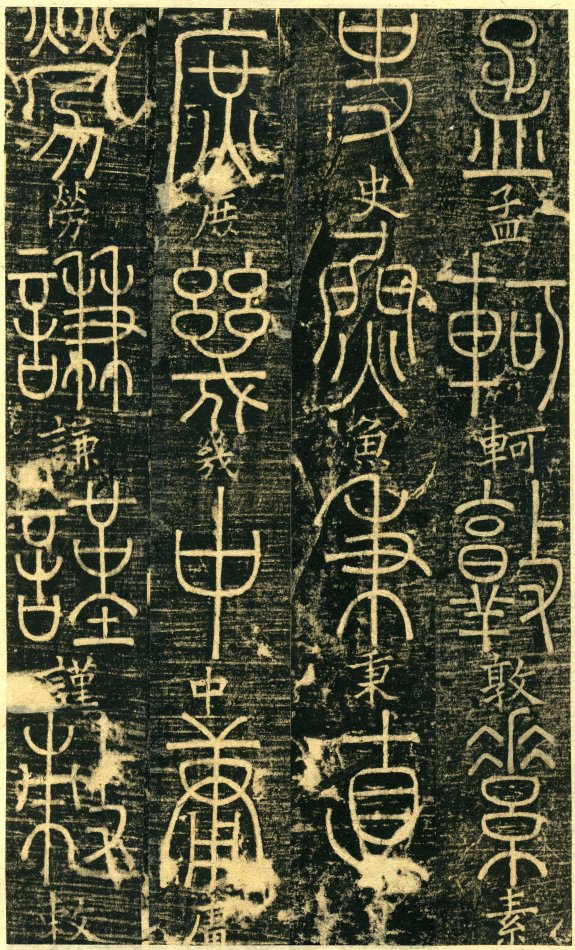 孟軻敦素
史魚秉直
庶幾中庸
勞謙謹敕